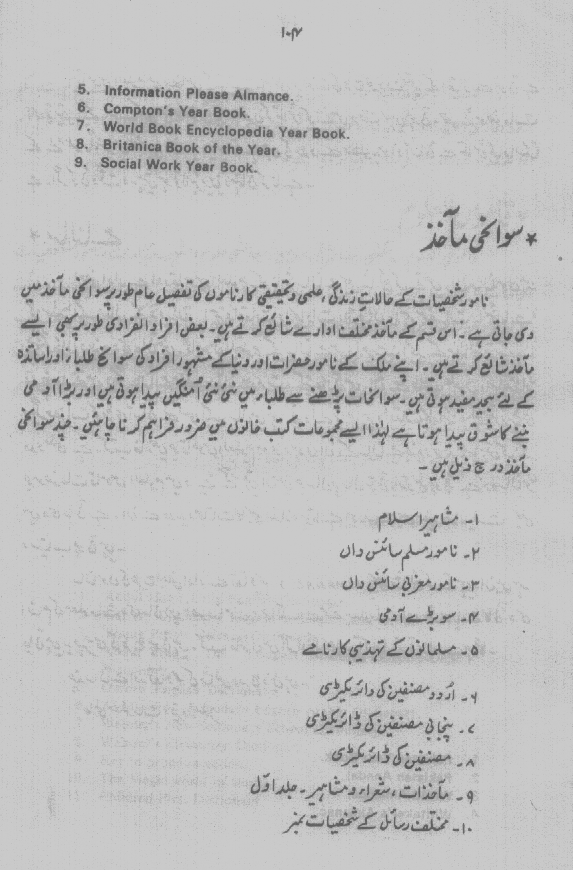 ۱۰۴
5. Information Please Almance.
6. Compton's Year Book.
7. World Book Encyclopedia Year Book.
8. Britanica Book of the Year.
9. Social Work Year Book.
* سوانحی مآخذ
نامور شخصیات کے حالاتِ زندگی، علمی و تحقیقی کارناموں کی تفصیل عام طور پر سوانحی مآخذ میں
دی جاتی ہے۔ اس قسم کے مآخذ مختلف ادارے شائع کرتے ہیں۔ بعض افراد انفرادی طور پر بھی ایسے
مآخذ شائع کرتے ہیں۔ اپنے ملک کے نامور حضرات اور دنیا کے مشہور افراد کی سوانح طلباء اور اساتذہ
کے لئے بیحد مفید ہوتی ہیں۔ سوانحات پڑھنے سے طلباء میں نئی نئی اُمنگیں پیدا ہوتی ہیں اور بڑا آدمی
بننے کا شوق پیدا ہوتا ہے لہٰذا ایسے مجموعات کتب خانوں میں ضرور فراہم کرنا چاہئیں۔ چند سوانحی
مآخذ درج ذیل ہیں۔
۱۔ مشاہیر اسلام
۲۔ نامور مسلم سائنس داں
۳۔ نامور مغربی سائنس داں
۴۔ سو بڑے آدمی
۵۔ مسلمانوں کے تہذیبی کارنامے
۶۔ اُردو مصنفین کی ڈائریکٹری
۷۔ پنجابی مصنفین کی ڈائریکٹری
۸۔ مصنفین کی ڈائریکٹری
۹۔ مآخذات، شعراء و مشاہیر۔ جلد اوّل
۱۰۔ مختلف رسائل کے شخصیات نمبر